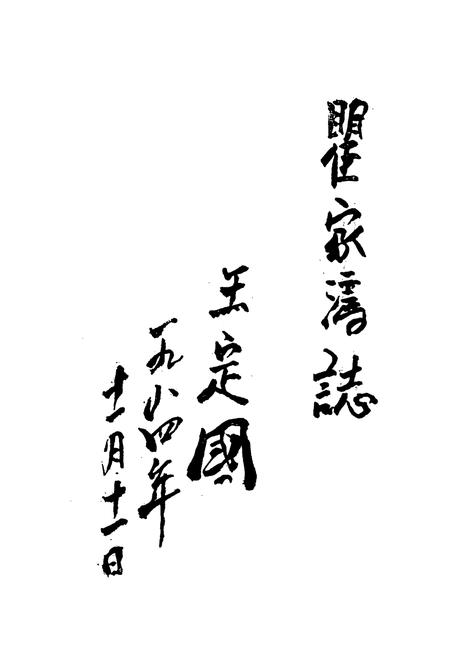 瞿家灣誌
王定國
一九八四年
十一月十一日